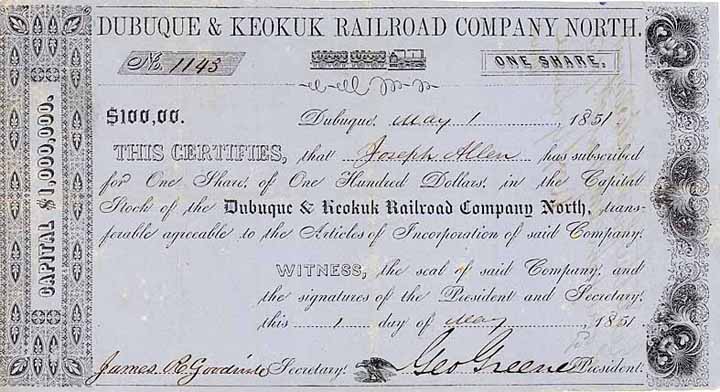 DUBUQUE & KEOKUK RAILROAD COMPANY NORTH.
No. 1143
ONE SHARE.
$100,00.
Dubuque, May 1, 1851.
THIS CERTIFIES, that Joseph Allen has subscribed
for One Share, of One Hundred Dollars, in the Capital
Stock of the Dubuque & Keokuk Railroad Company North, trans-
ferable agreeable to the Articles of Incorporation of said Company.
WITNESS, the seal of said Company, and
the signatures of the President and Secretary,
this 1 day of May, 1851
James R. Secretary. Geo Greene President.
CAPITAL $1,000,000.